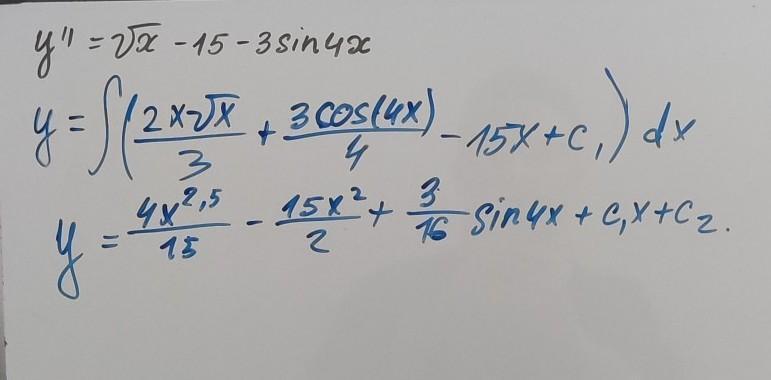 y'' = √x - 15 - 3sin4x
y = ∫(2x√x/3 + 3cos(4x)/4 - 15x + c₁)dx
y = 4x^2,5/15 - 15x²/2 + 3/16 sin4x + c₁x + c₂.